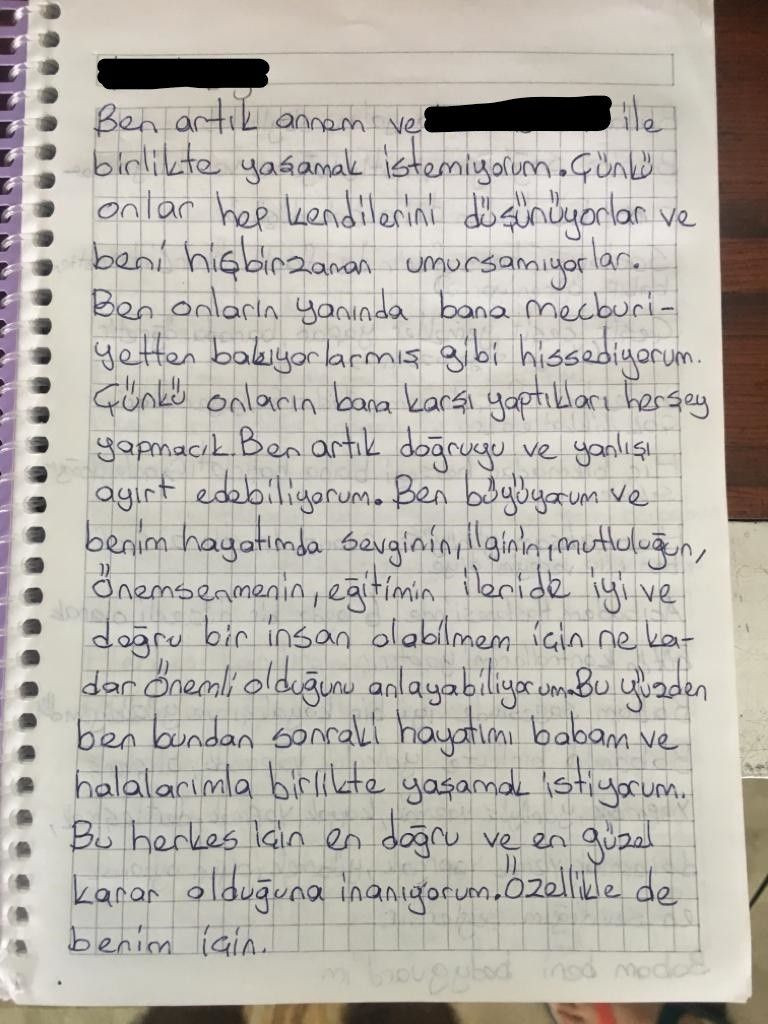 Ben artık annem ve ile
birlikte yaşamak istemiyorum. Çünkü
onlar hep kendilerini düşünüyorlar ve
beni hişbirzaman umursamıyorlar.
Ben onların yanında bana mecburi-
yetten bakıyorlarmış gibi hissediyorum.
Çünkü onların bana karşı yaptıkları herşey
yapmacık. Ben artık doğruyu ve yanlışı
ayırt edebiliyorum. Ben büyüyorum ve
benim hayatımda sevginin, ilginin, mutluluğun,
Önemsenmenin, eğitimin ileride iyi ve
doğru bir insan olabilmem için ne ka-
dar Önemli olduğunu anlayabiliyorum. Bu yüzden
ben bundan sonraki hayatımı babam ve
halalarımla birlikte yaşamak istiyorum.
Bu herkes için en doğru ve en güzel
karar olduğuna inanıyorum. Özellikle de
benim için.